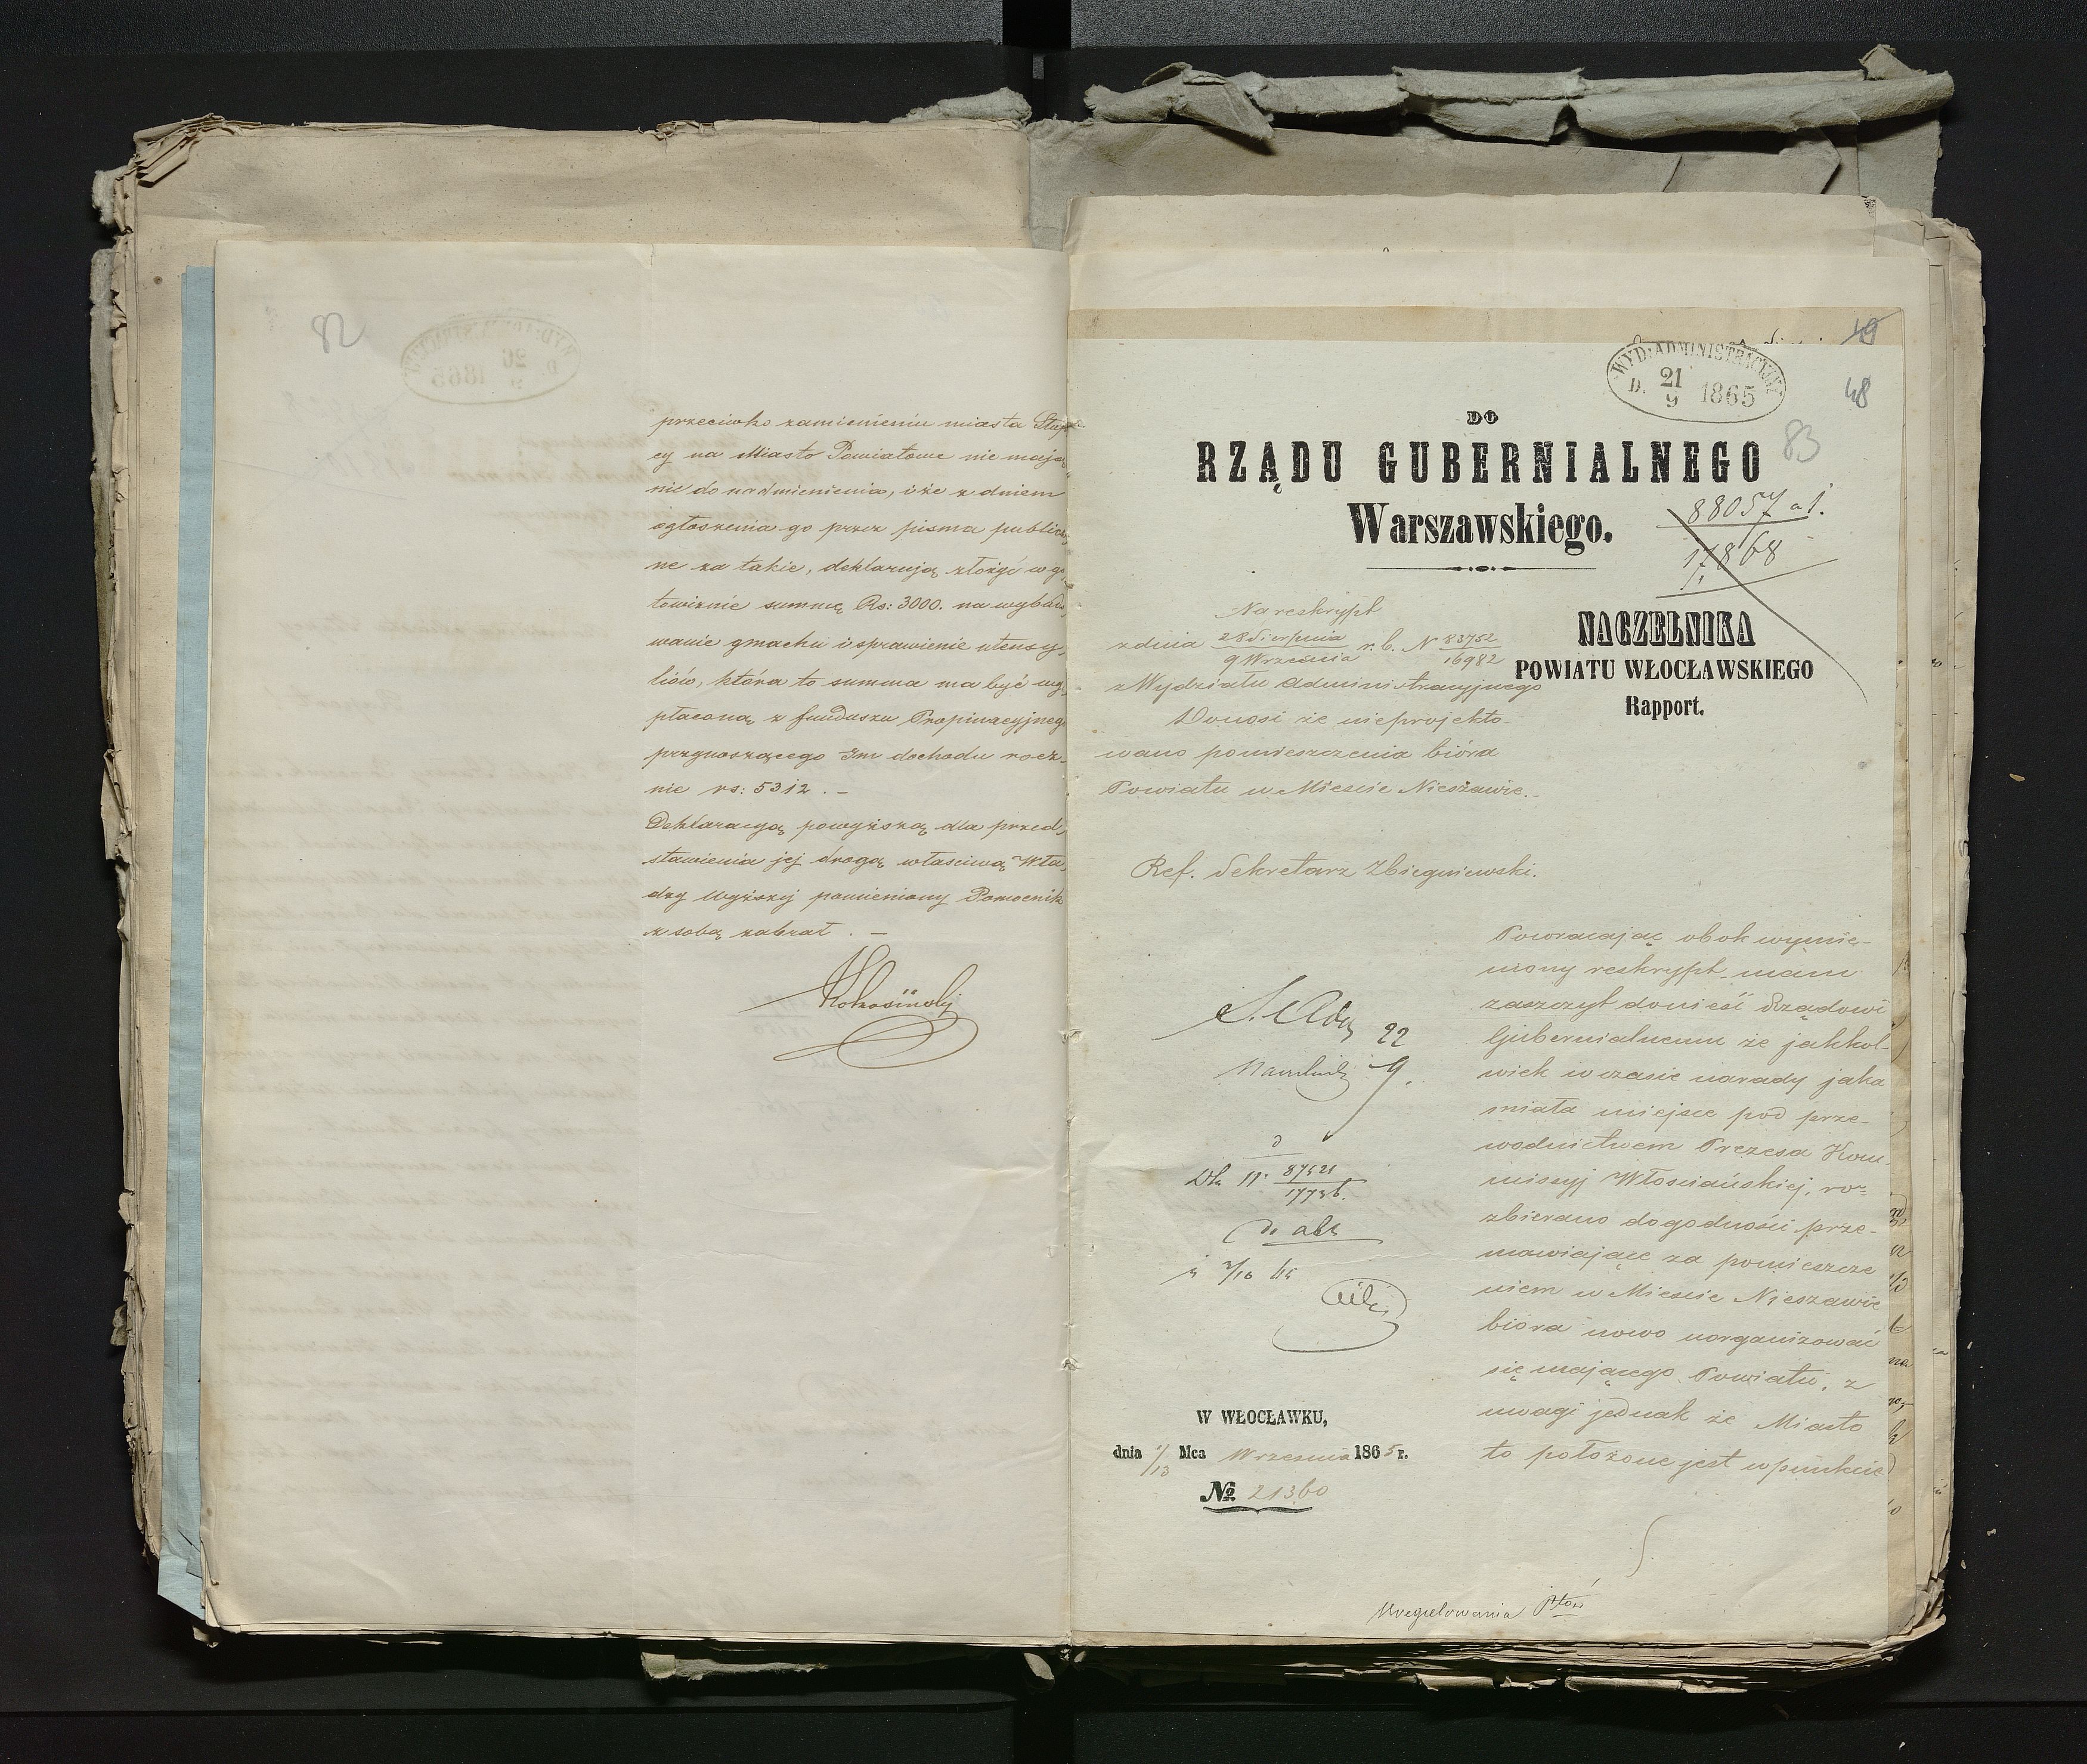 82
przeciwko zamienieniu miasta Słup
cy na Miasto Powiatowe nie mają
nic do nadmienienia, i że z dniem
ogłoszenia go przez pisma publicz
ne za takie, deklarują złożyć w go
towiznie summę Rs: 3000. na wybudo
wanie gmachu i sprawienie utensy
liów, która to summa ma być wy
płaconą z funduszu Propinacyjnego
przynoszącego Im dochodu rocz-
nie rs: 5312. –
Deklaracyą powyższą dla przed
stawienia jej drogą właściwą Wła
dzy Wyższej pomieniony Pomocnik
z sobą zabrał. –
WYD: ADMINISTRACYJNY
D. 21/9 1865
49
48
83
DO
RZĄDU GUBERNIALNEGO
Warszawskiego.
88057 a 1.
17868
NACZELNIKA
POWIATU WŁOCŁAWSKIEGO
Rapport.
Na reskrypt
z dnia 28 Sierpnia / 9 Września r. b. N 83752 / 16982
z Wydziału Administracyjnego
Donosi że nieprojekto-
wano pomieszczenia bióra
Powiatu w Mieście Nieszawie.
Ref. Sekretarz Zbiegniewski.
Powracając obok wymie-
niony reskrypt mam
zaszczyt donieść Rządowi
Gubernialnemu że jakkol-
wiek w czasie narady jaka
miała miejsce pod prze-
wodnictwem Prezesa Kom-
missyj Włościańskiej, ro-
zbierano dogodności prze-
mawiające za pomieszcze
niem w Mieście Nieszawie
bióra nowo uorganizować
się mającego Powiatu, z
uwagi jednak że Miasto
to położone jest w punkcie
22
9.
W WŁOCŁAWKU,
dnia 1/13 Mca Września 1865 r.
№ 21360
Uregulowania